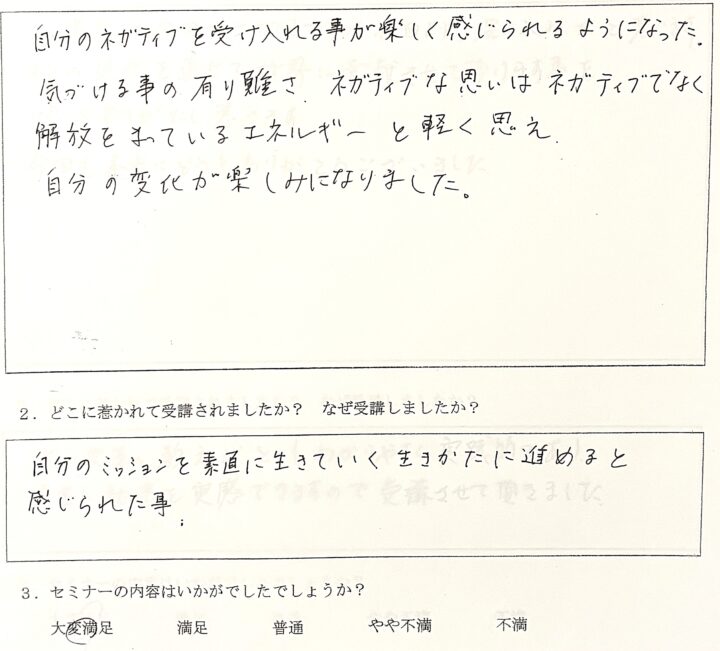 自分のネガティブを受け入れる事が楽しく感じられるようになった.
気づける事の有り難さ. ネガティブな思いは ネガティブでなく
解放をまっているエネルギー と軽く思え.
自分の変化が楽しみになりました。
2．どこに惹かれて受講されましたか？　なぜ受講しましたか？
自分のミッションを素直に生きていく生きかたに進めると
感じられた事.
3．セミナーの内容はいかがでしたでしょうか？
大変満足　満足　普通　やや不満　不満